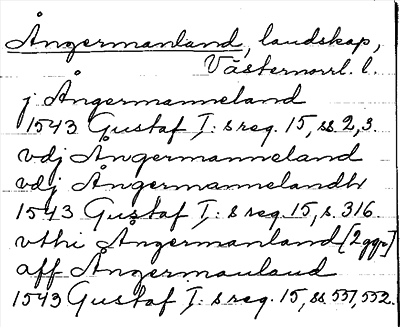 Ångermanland, landskap,
Västernorrl. l.
j Ångermanneland
1543 Gustaf I:s reg. 15, ss. 2, 3.
vdj Ångermanneland
vdj Ångermannelandh
1543 Gustaf I:s reg. 15, s. 316
vthi Ångermanland [2 ggr]
aff Ångermanland
1543 Gustaf I:s reg. 15, ss. 551, 552.